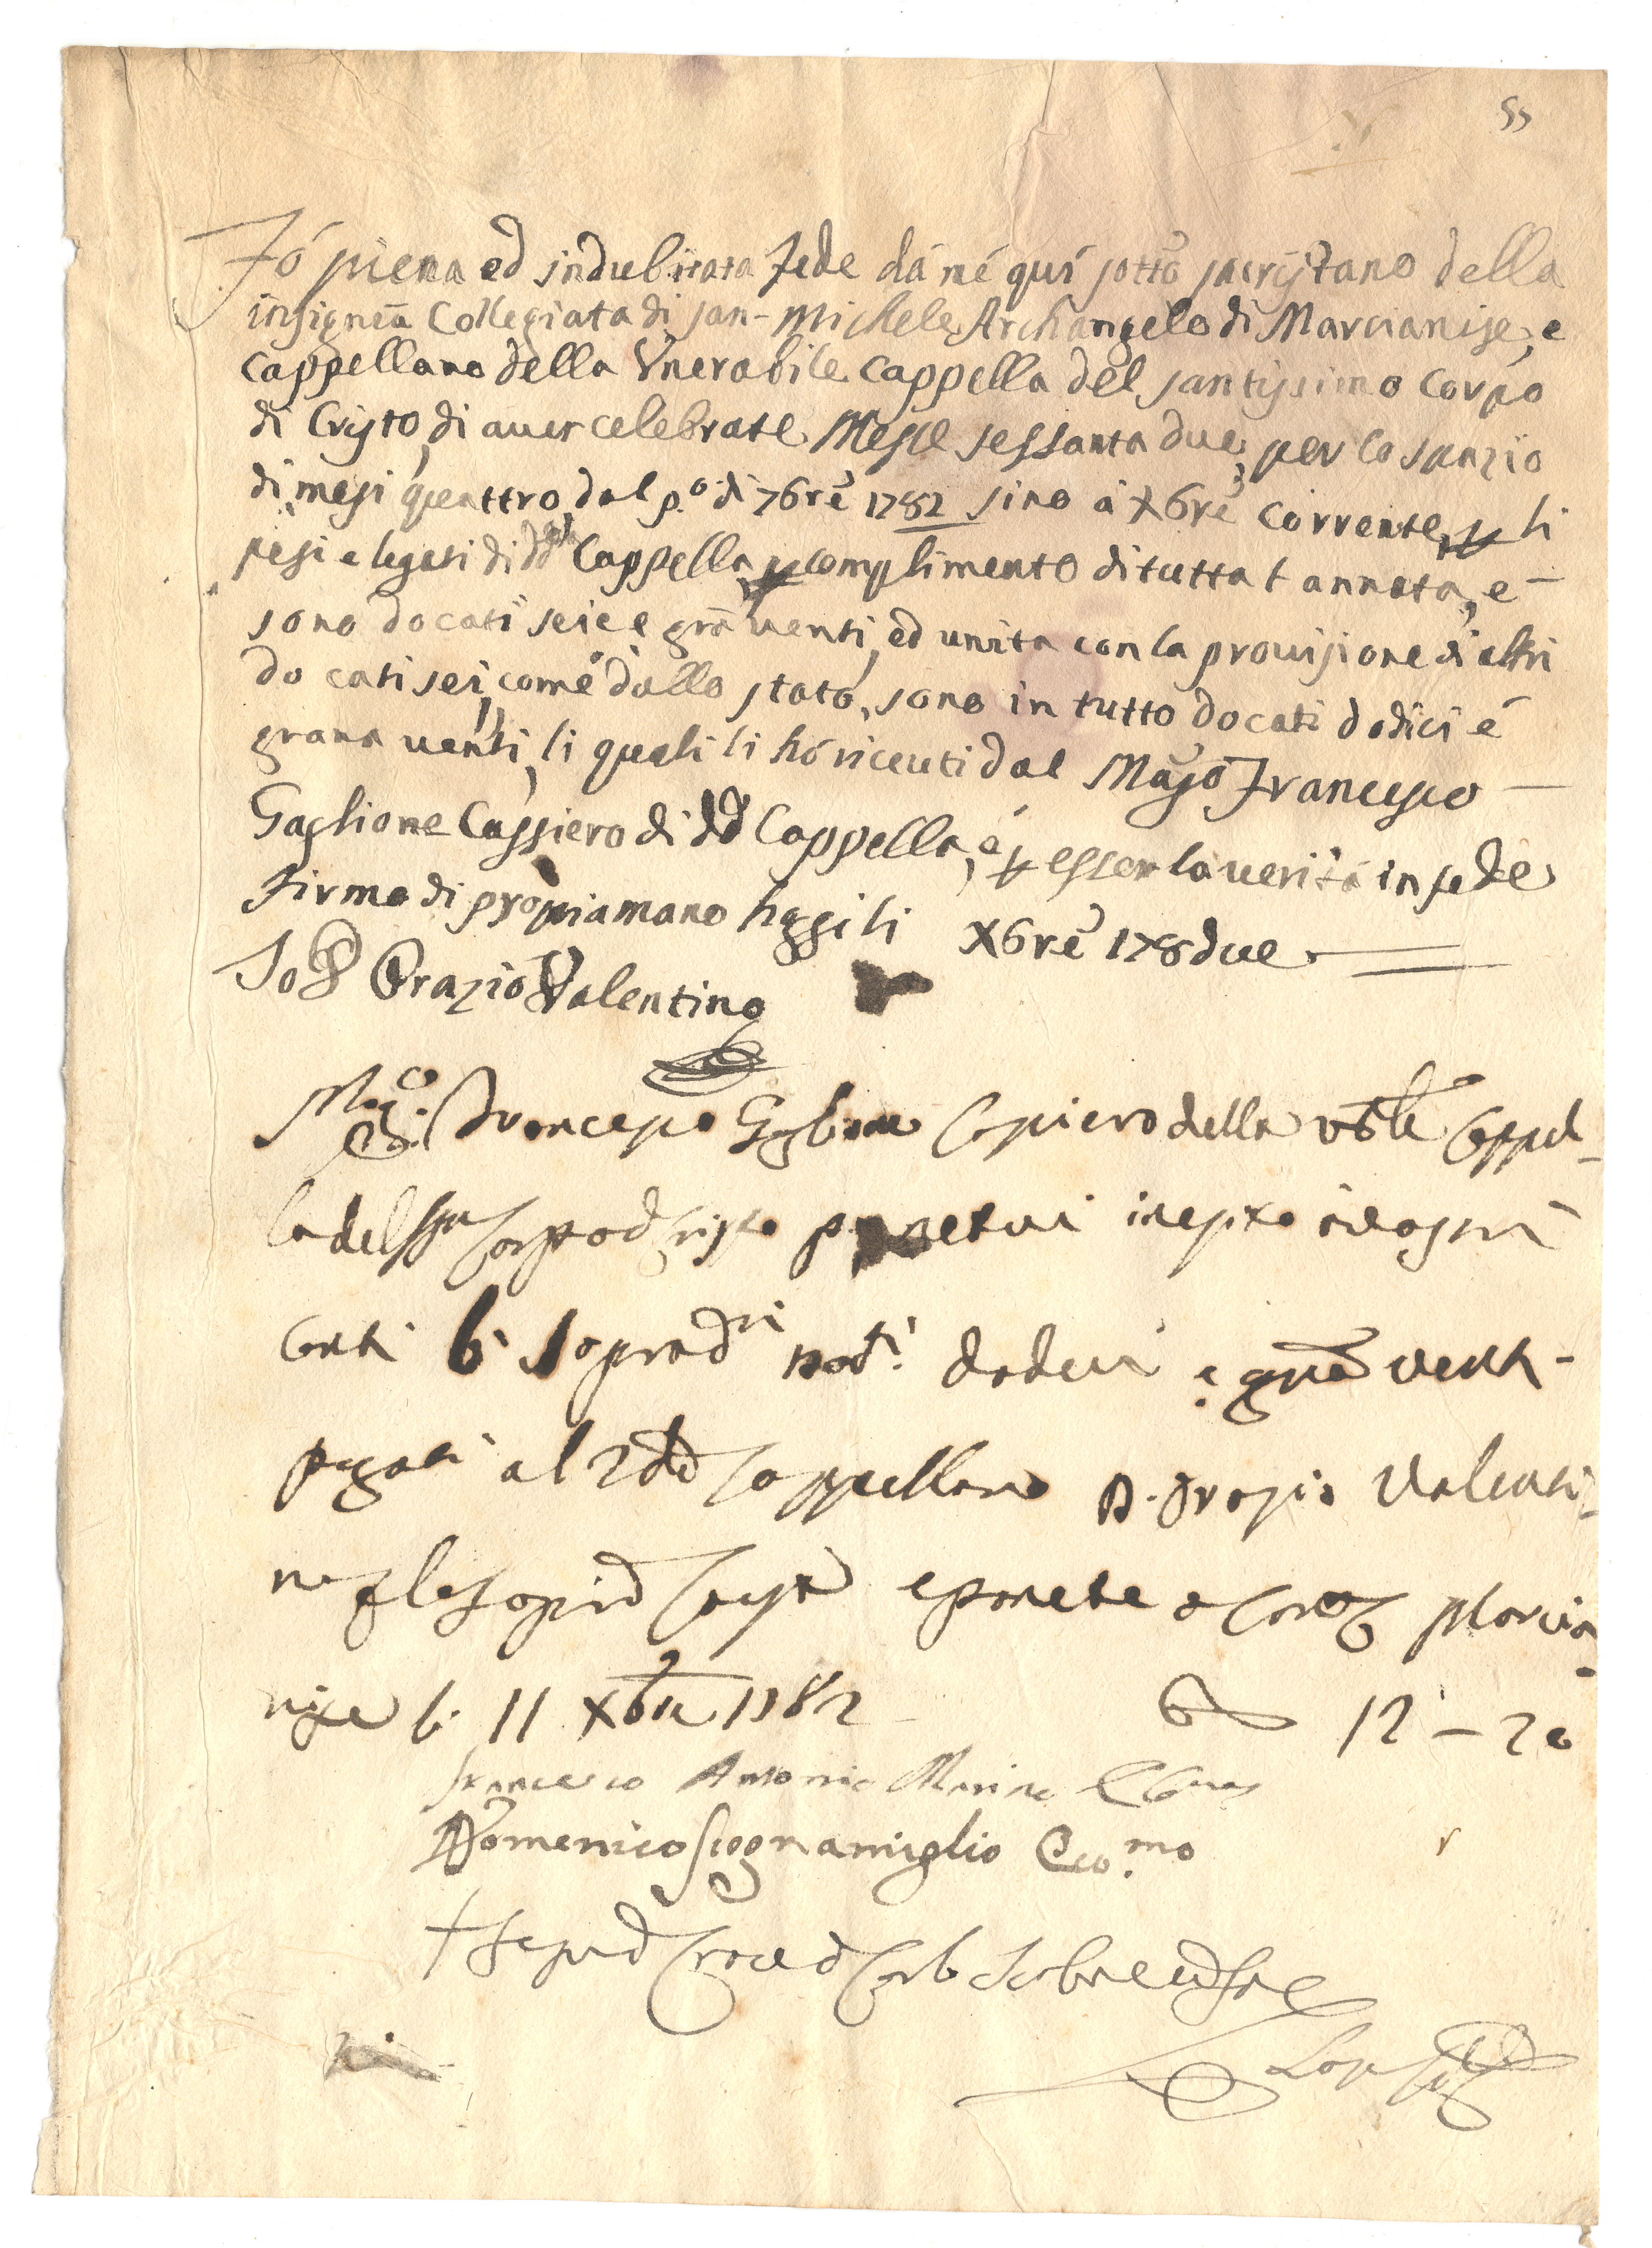 55
Fó piena ed indubitata fede dà mé quí sotto sacristano della
insignia Collegiata di san-Michele Archangelo di Marcianise, e
cappellano della Vnerabile Cappella del santissimo Corpo
di Cristo, di auer celebrate Messe sessanta due, per lo spazio
di mesi quattro, dal p.º di 7bre 1782 sino à Xbre corrente, p li
pesi e legati di dda Cappella, p complimento di tutta l annata, e
sono docati seie e gra uenti, ed unita con la prouisione di altri
do cati sei, come dallo stato, sono in tutto docati dodici é
grana uenti, li quali li hó riceuti dal Mag.co Francesco
Gaglione Cassiero di dd Cappella, é p esser la uerità in fede
firmo di propria mano hoggi li Xbre 178due
Io D Orazio Valentino
Mag.co Francesco Gaglione Cassiero della vble Cappel-
la del SSmo Corpo di Cristo ponetevi
conti li soprad.ti doc.ti dodeci e grà venti
pagati al Cappellano D. Orazio Valenti-
no e ponete a Marcia-
nise li 11 Xbre 1782 12-20
Francesco Antonio Marino
Domenico Scognamiglio Eco.mo
+ Segno di Croce di